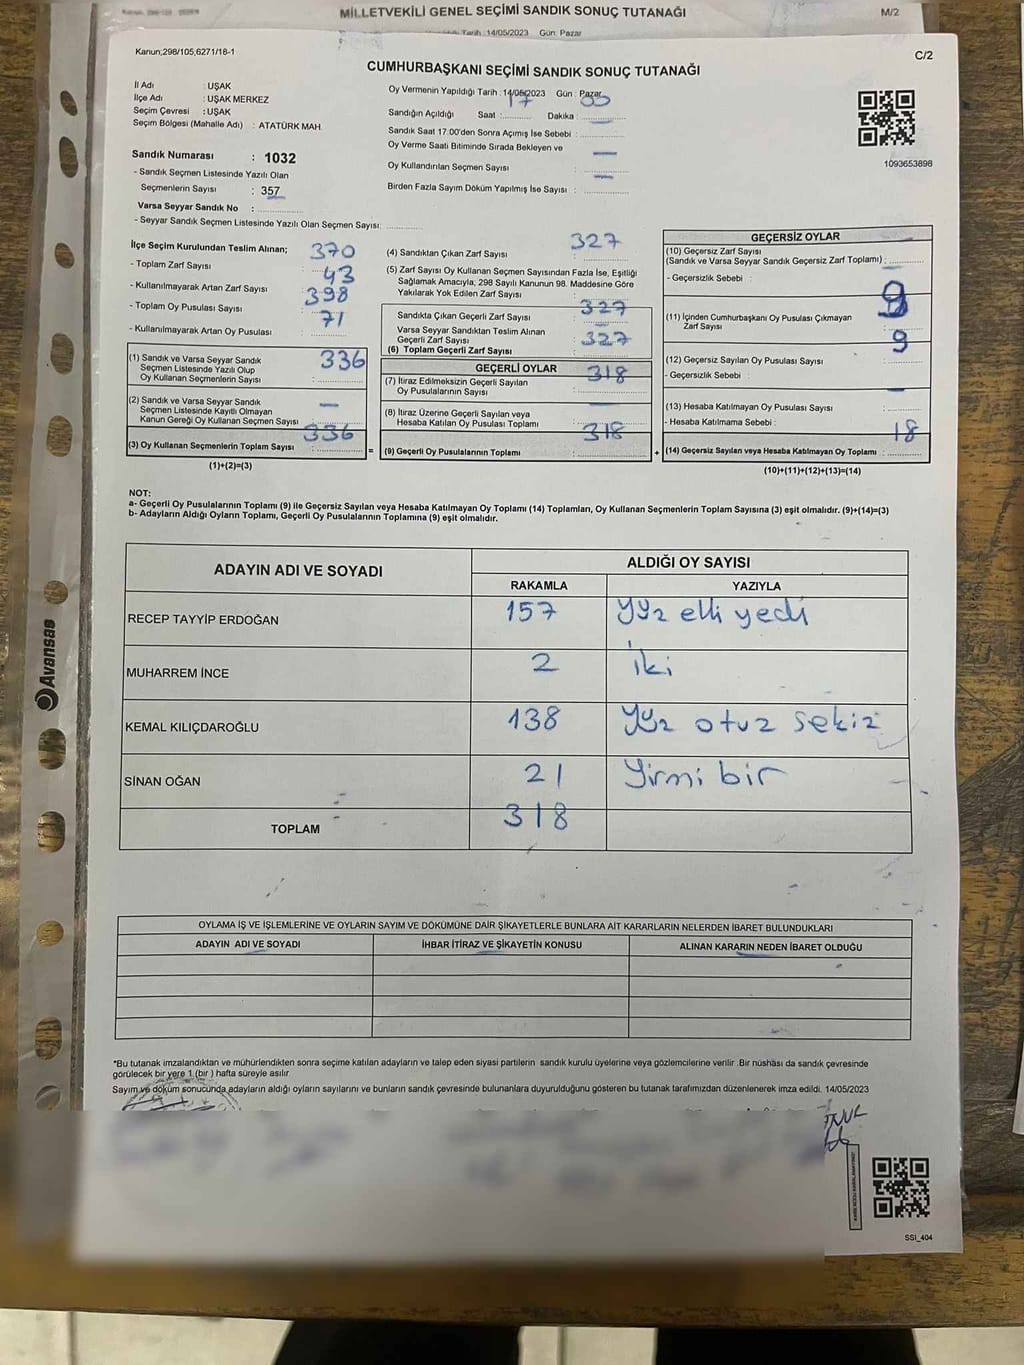 MİLLETVEKİLİ GENEL SEÇİMİ SANDIK SONUÇ TUTANAĞI
M/2
Tarih :14/05/2023 Gün: Pazar
Kanun;298/105,6271/18-1
C/2
CUMHURBAŞKANI SEÇİMİ SANDIK SONUÇ TUTANAĞI
İl Adı : UŞAK
İlçe Adı : UŞAK MERKEZ
Seçim Çevresi : UŞAK
Seçim Bölgesi (Mahalle Adı) : ATATÜRK MAH.
Sandık Numarası : 1032
- Sandık Seçmen Listesinde Yazılı Olan
Seçmenlerin Sayısı : 357
Varsa Seyyar Sandık No :
- Seyyar Sandık Seçmen Listesinde Yazılı Olan Seçmen Sayısı:
Oy Vermenin Yapıldığı Tarih :14/05/2023 Gün : Pazar
Sandığın Açıldığı Saat : 17 Dakika : 00
Sandık Saat 17:00'den Sonra Açımış İse Sebebi : —
Oy Verme Saati Bitiminde Sırada Bekleyen ve
Oy Kullandırılan Seçmen Sayısı : —
Birden Fazla Sayım Döküm Yapılmış İse Sayısı : —
1093653898
İlçe Seçim Kurulundan Teslim Alınan;
- Toplam Zarf Sayısı : 370
- Kullanılmayarak Artan Zarf Sayısı : 43
- Toplam Oy Pusulası Sayısı : 398
- Kullanılmayarak Artan Oy Pusulası : 71
(1) Sandık ve Varsa Seyyar Sandık
Seçmen Listesinde Yazılı Olup
Oy Kullanan Seçmenlerin Sayısı : 336
(2) Sandık ve Varsa Seyyar Sandık
Seçmen Listesinde Kayıtlı Olmayan
Kanun Gereği Oy Kullanan Seçmen Sayısı : —
(3) Oy Kullanan Seçmenlerin Toplam Sayısı : 336
(1)+(2)=(3)
=
(4) Sandıktan Çıkan Zarf Sayısı : 327
(5) Zarf Sayısı Oy Kullanan Seçmen Sayısından Fazla İse, Eşitliği
Sağlamak Amacıyla; 298 Sayılı Kanunun 98. Maddesine Göre
Yakılarak Yok Edilen Zarf Sayısı :
Sandıkta Çıkan Geçerli Zarf Sayısı : 327
Varsa Seyyar Sandıktan Teslim Alınan
Geçerli Zarf Sayısı :
(6) Toplam Geçerli Zarf Sayısı : 327
GEÇERLİ OYLAR
(7) İtiraz Edilmeksizin Geçerli Sayılan
Oy Pusulalarının Sayısı : 318
(8) İtiraz Üzerine Geçerli Sayılan veya
Hesaba Katılan Oy Pusulası Toplamı : —
(9) Geçerli Oy Pusulalarının Toplamı : 318
+
GEÇERSİZ OYLAR
(10) Geçersiz Zarf Sayısı
(Sandık ve Varsa Seyyar Sandık Geçersiz Zarf Toplamı) : —
- Geçersizlik Sebebi :
(11) İçinden Cumhurbaşkanı Oy Pusulası Çıkmayan
Zarf Sayısı : 9
(12) Geçersiz Sayılan Oy Pusulası Sayısı : 9
- Geçersizlik Sebebi :
(13) Hesaba Katılmayan Oy Pusulası Sayısı : —
- Hesaba Katılmama Sebebi :
(14) Geçersiz Sayılan veya Hesaba Katılmayan Oy Toplamı : 18
(10)+(11)+(12)+(13)=(14)
NOT:
a- Geçerli Oy Pusulalarının Toplamı (9) ile Geçersiz Sayılan veya Hesaba Katılmayan Oy Toplamı (14) Toplamları, Oy Kullanan Seçmenlerin Toplam Sayısına (3) eşit olmalıdır. (9)+(14)=(3)
b- Adayların Aldığı Oyların Toplamı, Geçerli Oy Pusulalarının Toplamına (9) eşit olmalıdır.
ADAYIN ADI VE SOYADI
ALDIĞI OY SAYISI
RAKAMLA YAZIYLA
RECEP TAYYİP ERDOĞAN 157 Yüz elli yedi
MUHARREM İNCE 2 iki
KEMAL KILIÇDAROĞLU 138 Yüz otuz sekiz
SİNAN OĞAN 21 Yirmi bir
TOPLAM 318
OYLAMA İŞ VE İŞLEMLERİNE VE OYLARIN SAYIM VE DÖKÜMÜNE DAİR ŞİKAYETLERLE BUNLARA AİT KARARLARIN NELERDEN İBARET BULUNDUKLARI
ADAYIN ADI VE SOYADI
İHBAR İTİRAZ VE ŞİKAYETİN KONUSU
ALINAN KARARIN NEDEN İBARET OLDUĞU
*Bu tutanak imzalandıktan ve mühürlendikten sonra seçime katılan adayların ve talep eden siyasi partilerin sandık kurulu üyelerine veya gözlemcilerine verilir .Bir nüshası da sandık çevresinde
görülecek bir yere 1 (bir ) hafta süreyle asılır.
Sayım ve döküm sonucunda adayların aldığı oyların sayılarını ve bunların sandık çevresinde bulunanlara duyurulduğunu gösteren bu tutanak tarafımızdan düzenlenerek imza edildi. 14/05/2023
SSI_404
Avansas